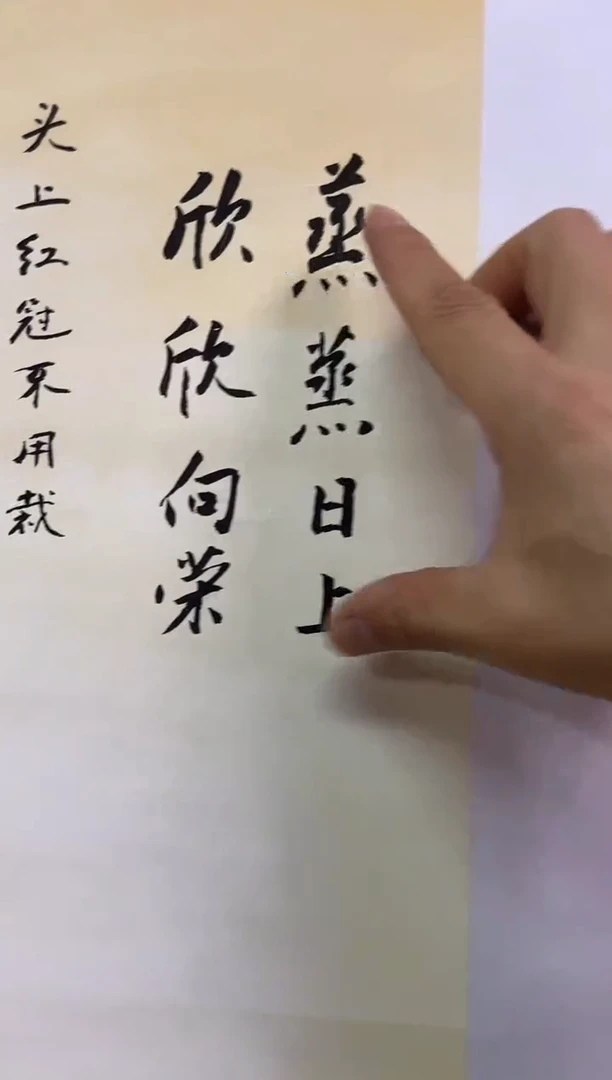 蒸蒸日上
欣欣向荣
头上红冠不用裁